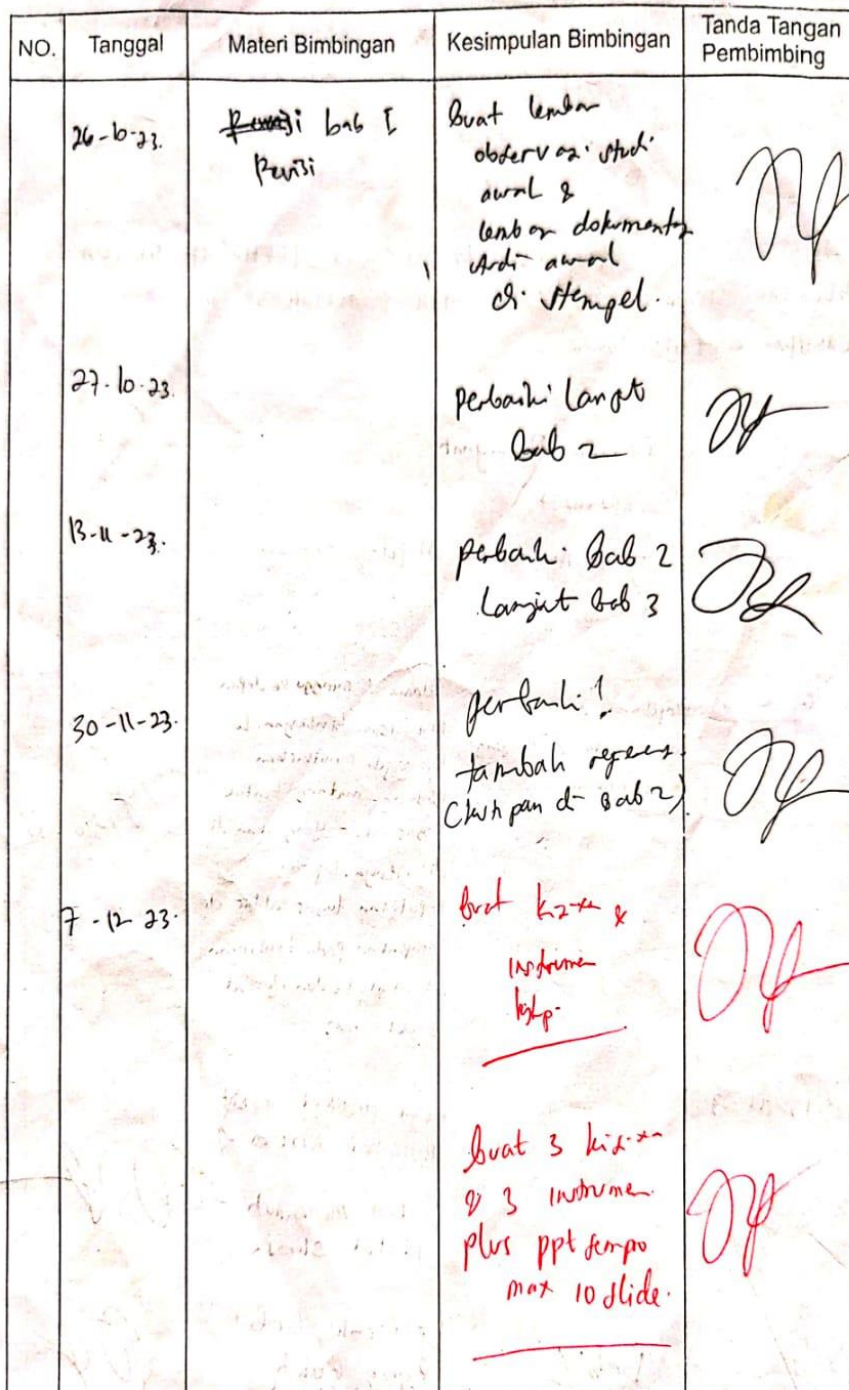 NO. Tanggal Materi Bimbingan Kesimpulan Bimbingan Tanda Tangan Pembimbing
26-10-23. bab I
Revisi
buat lembar
observasi studi
awal &
lembar dokumentasi
studi awal
di stempel.
27-10-23.
perbaiki lanjut
bab 2
13-11-23.
perbaiki bab 2
lanjut bab 3
30-11-23.
perbaiki!
tambah
(kutipan di bab 2)
7-12-23.
buat &
instrumen
buat 3
& 3 instrumen
plus ppt sempro
max 10 slide.